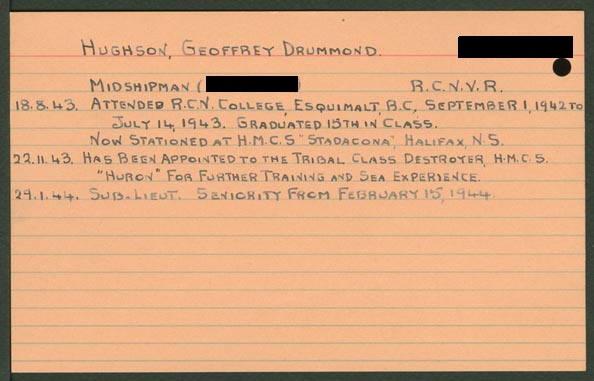 HUGHSON, GEOFFREY DRUMMOND.
MIDSHIPMAN ( ) R.C.N.V.R.
18.8.43. ATTENDED R.C.N. COLLEGE, ESQUIMALT, B.C, SEPTEMBER 1, 1942 TO
JULY 14, 1943. GRADUATED 15TH IN CLASS.
NOW STATIONED AT H.M.C.S "STADACONA", HALIFAX, N.S.
22.11.43. HAS BEEN APPOINTED TO THE TRIBAL CLASS DESTROYER, H.M.C.S.
"HURON" FOR FURTHER TRAINING AND SEA EXPERIENCE.
29.1.44. SUB-LIEUT. SENIORITY FROM FEBRUARY 15, 1944.